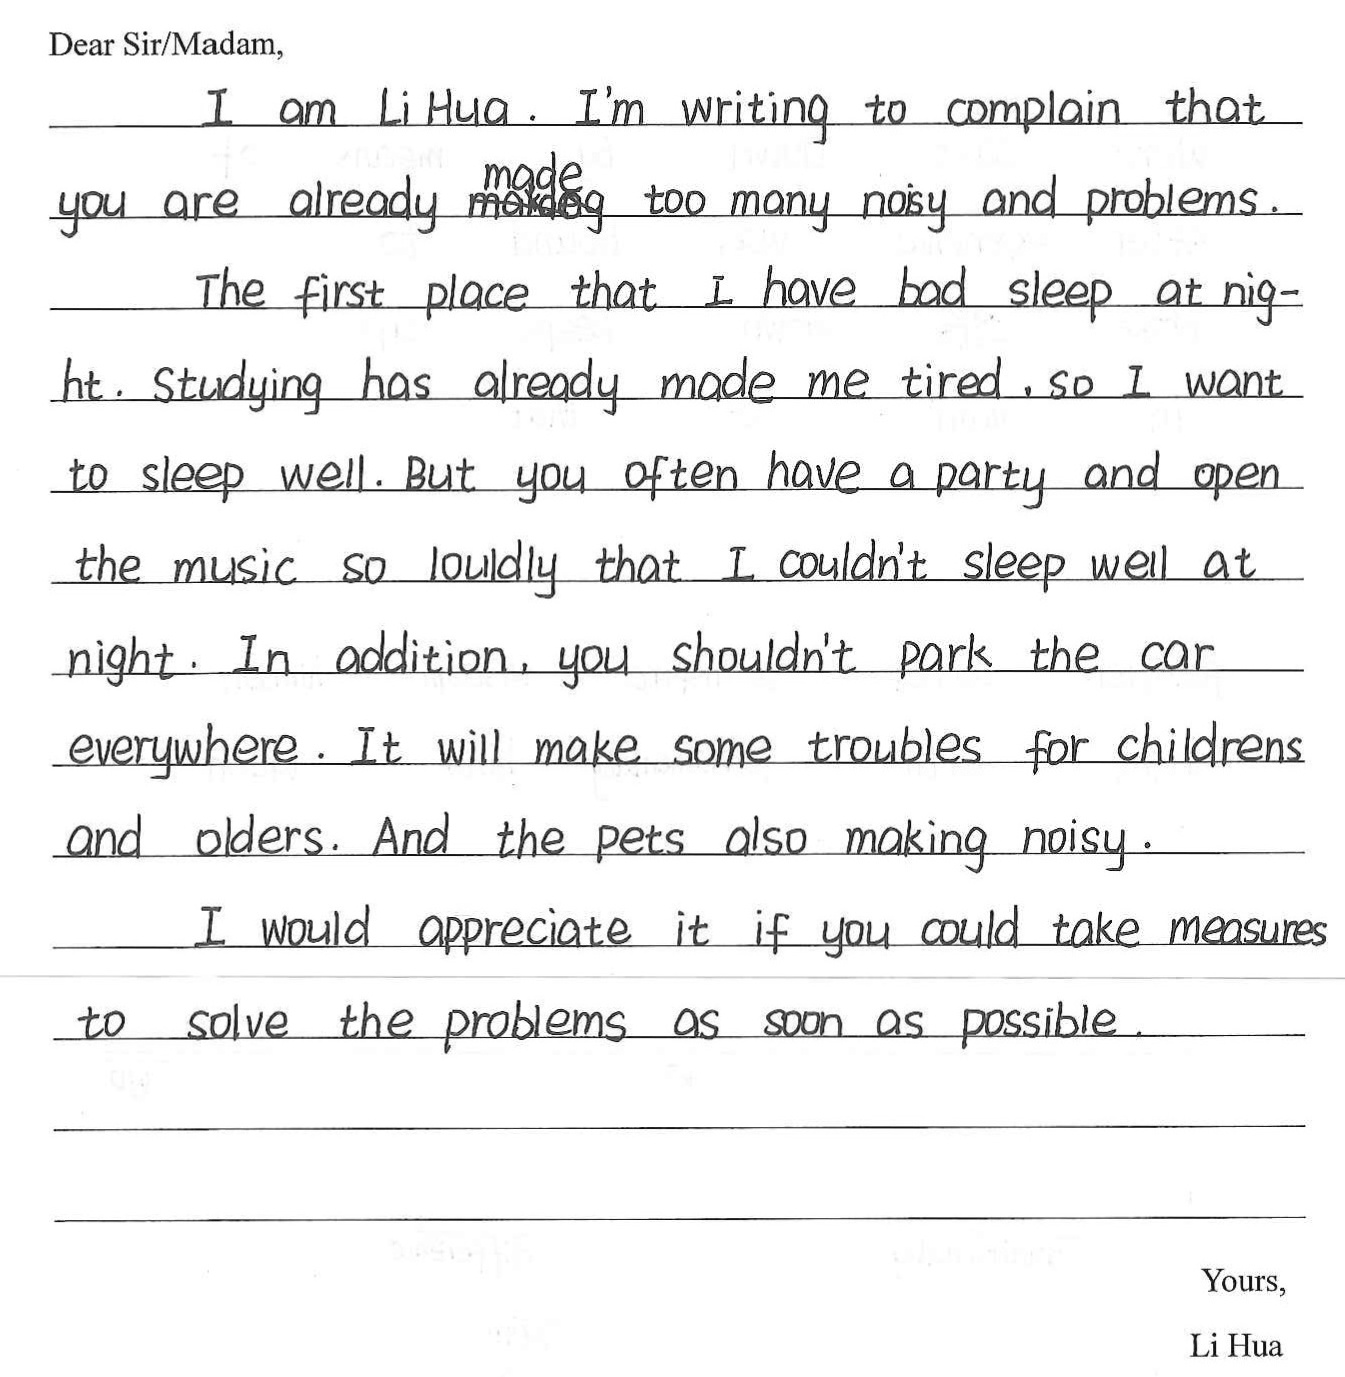 Dear Sir/Madam,
I am Li Hua. I'm writing to complain that
you are already made too many noisy and problems.
The first place that I have bad sleep at nig-
ht. Studying has already made me tired, so I want
to sleep well. But you often have a party and open
the music so louldly that I couldn't sleep well at
night. In addition, you shouldn't park the car
everywhere. It will make some troubles for childrens
and olders. And the pets also making noisy.
I would appreciate it if you could take measures
to solve the problems as soon as possible.
Yours,
Li Hua